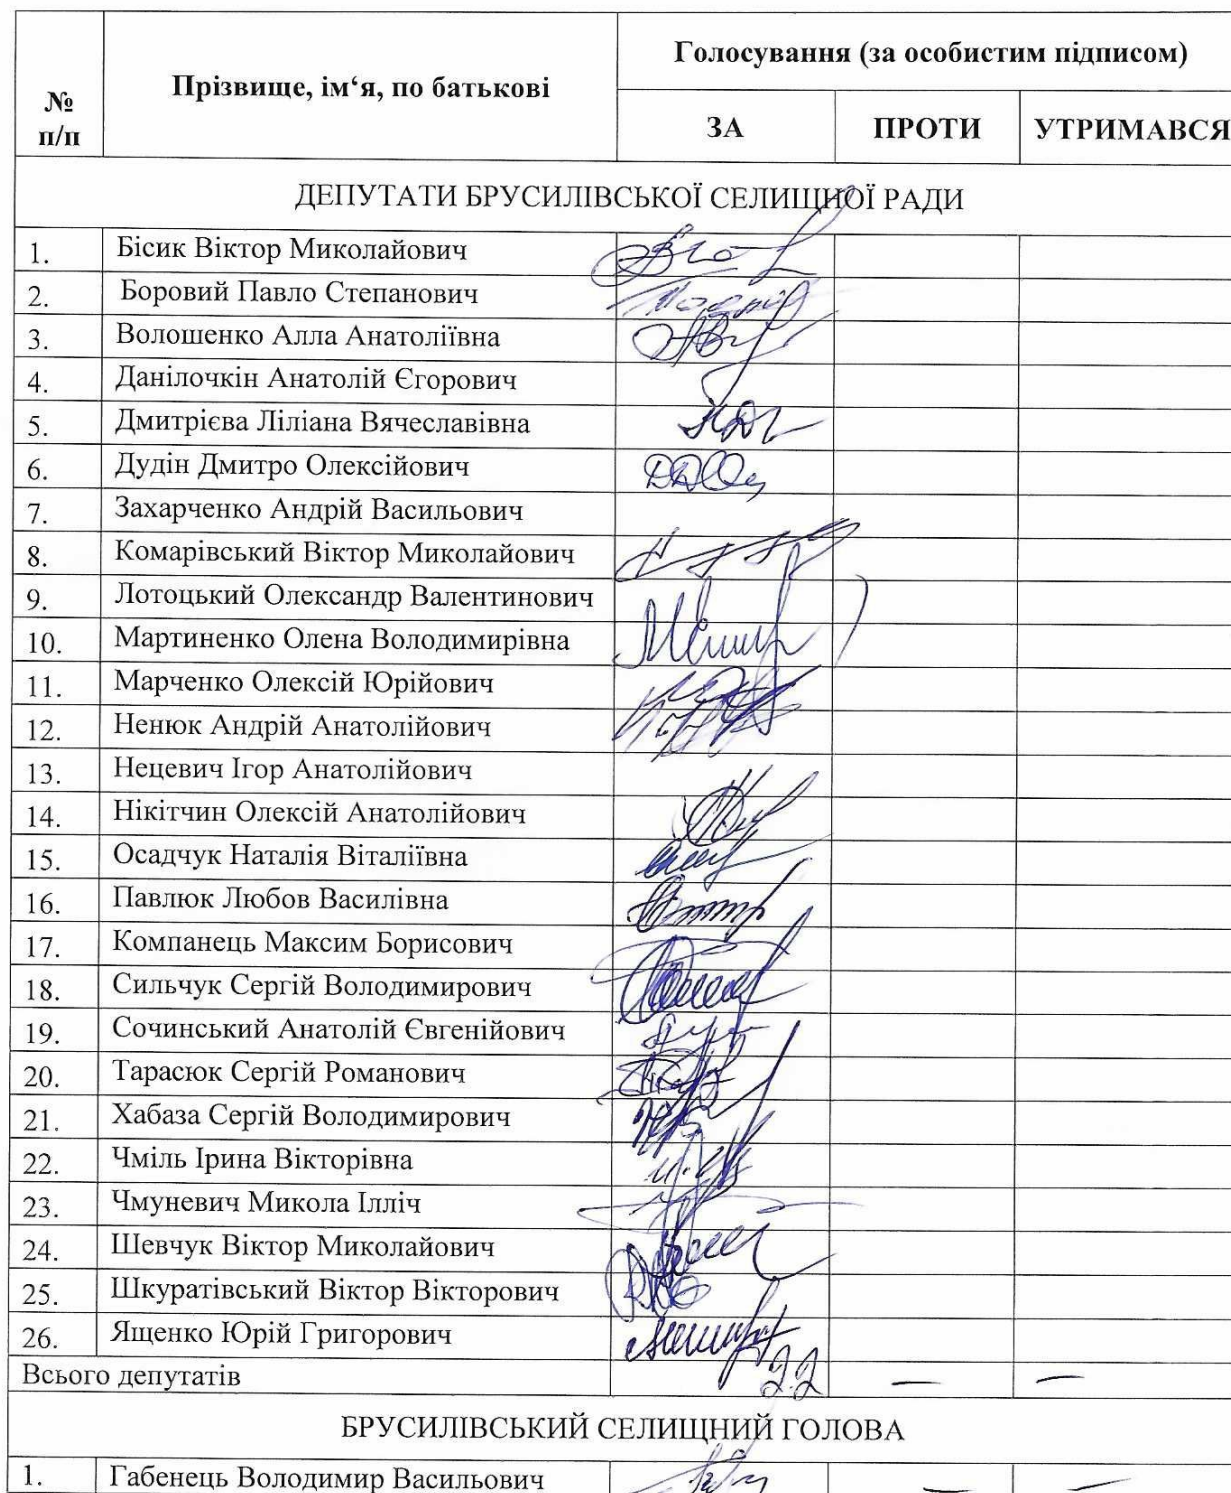 № п/п
Прізвище, ім‘я, по батькові
Голосування (за особистим підписом)
ЗА
ПРОТИ
УТРИМАВСЯ
ДЕПУТАТИ БРУСИЛІВСЬКОЇ СЕЛИЩНОЇ РАДИ
1. Бісик Віктор Миколайович
2. Боровий Павло Степанович
3. Волошенко Алла Анатоліївна
4. Данілочкін Анатолій Єгорович
5. Дмитрієва Ліліана Вячеславівна
6. Дудін Дмитро Олексійович
7. Захарченко Андрій Васильович
8. Комарівський Віктор Миколайович
9. Лотоцький Олександр Валентинович
10. Мартиненко Олена Володимирівна
11. Марченко Олексій Юрійович
12. Ненюк Андрій Анатолійович
13. Нецевич Ігор Анатолійович
14. Нікітчин Олексій Анатолійович
15. Осадчук Наталія Віталіївна
16. Павлюк Любов Василівна
17. Компанець Максим Борисович
18. Сильчук Сергій Володимирович
19. Сочинський Анатолій Євгенійович
20. Тарасюк Сергій Романович
21. Хабаза Сергій Володимирович
22. Чміль Ірина Вікторівна
23. Чмуневич Микола Ілліч
24. Шевчук Віктор Миколайович
25. Шкуратівський Віктор Вікторович
26. Ященко Юрій Григорович
Всього депутатів 22 — —
БРУСИЛІВСЬКИЙ СЕЛИЩНИЙ ГОЛОВА
1. Габенець Володимир Васильович — —